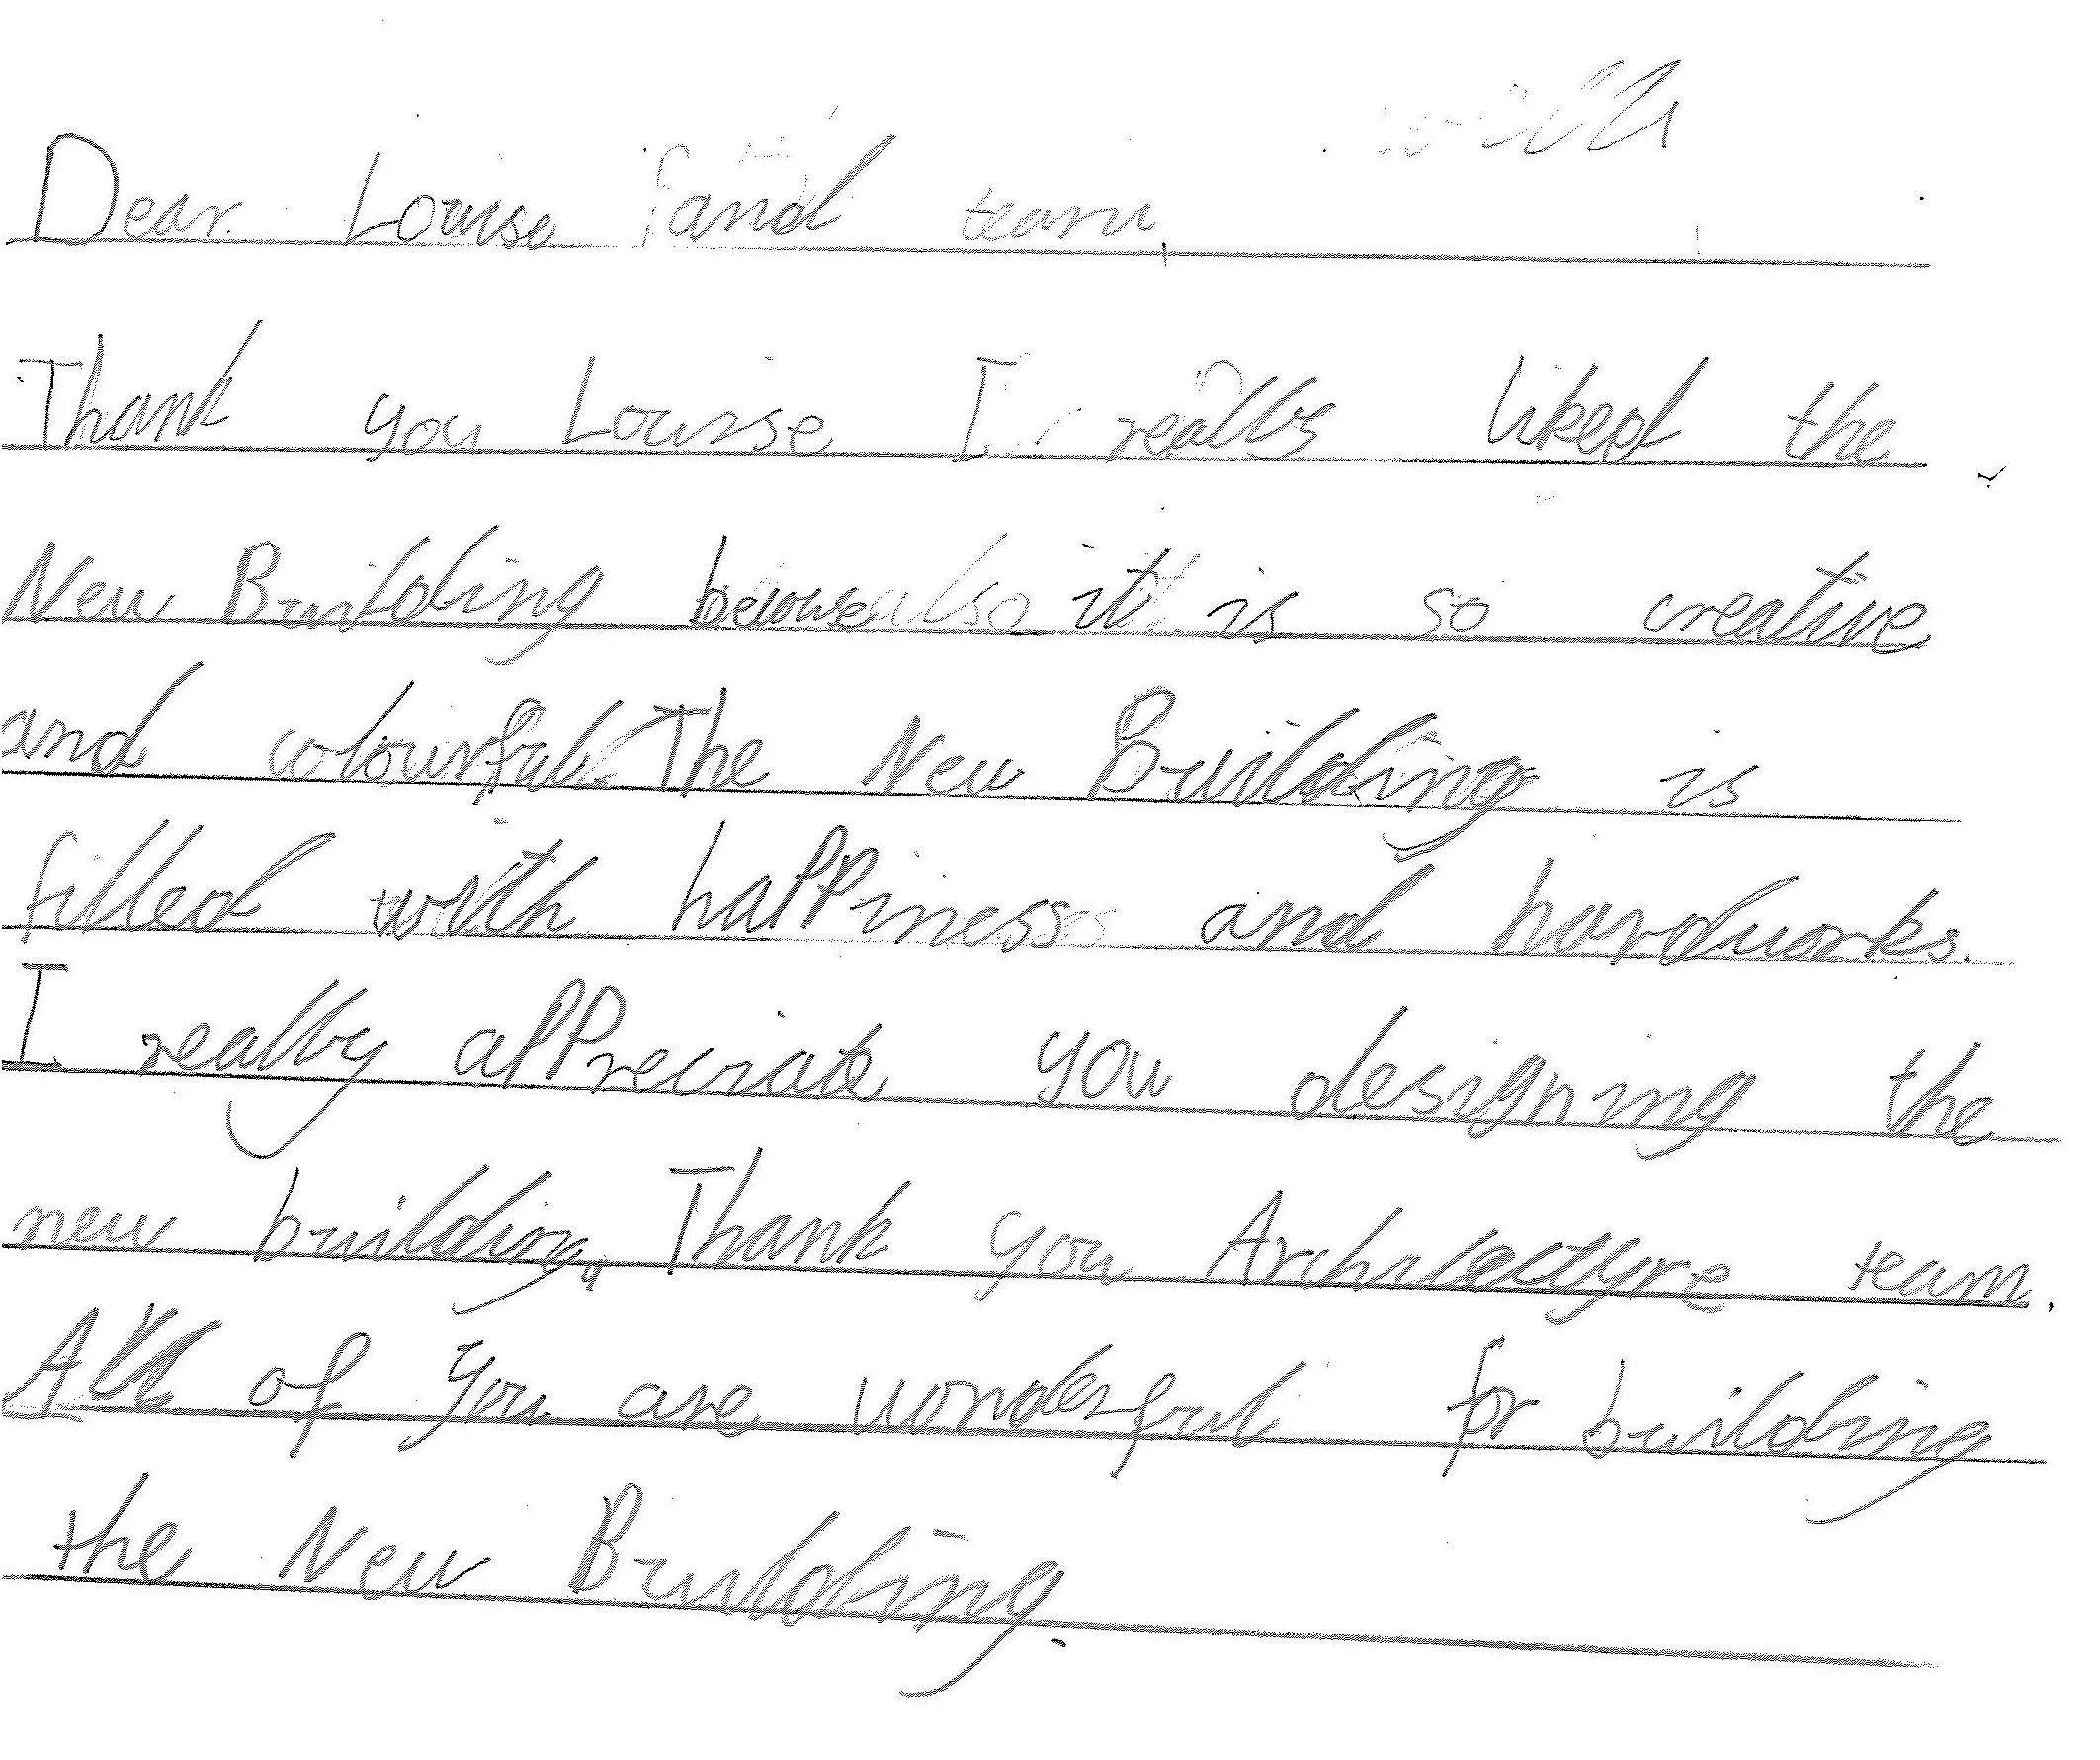 Dear Louise and team,
Thank you Louise I really liked the
New Building because it is so creative
and colourful. The New Building is
filled with happiness and hardworks.
I really appreciate you designing the
new building, Thank you Architectyre team.
All of you are wonderful for building
the New Building.